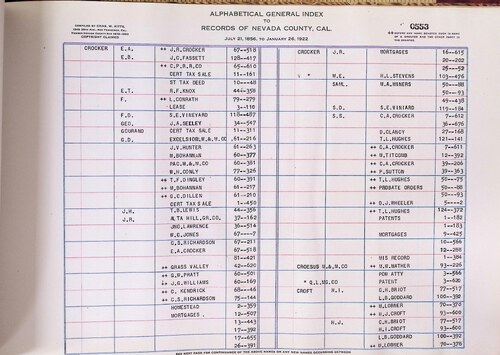 ALPHABETICAL GENERAL INDEX
TO
RECORDS OF NEVADA COUNTY, CAL.
JULY 21, 1856, TO JANUARY 28, 1922
COPYRIGHT CLAIMED
0553
CROCKER E.A. ↔ J.R.CROCKER 67--518 CROCKER J.R. MORTGAGES 16--615
E.B. J.C.FASSETT 128--417 20--202
↔ C.P.R.R.CO 65--616 25---52
CERT TAX SALE 11--161 " M.E. H.L.STEVENS 103--476
ST TAX DEED 10---48 SAML. H.A.MINERS 50---88
E.T. R.F.KNOX 44--358 50---93
F. ↔ L.CONRATH 79--279 49--438
LEASE 3--110 S.D. S.E.VINIARD 119--184
F.D. S.E.VINEYARD 118--487 S.S. C.A.CROCKER 7--612
GEO. J.A.SEELEY 34--547 36--676
GOURAND CERT TAX SALE 11--311 D.CLANCY 27--168
G.D. EXCELSIOR W.& M.CO 61--216 T.L.HUGHES 121--141
J.V.HUNTER 61--263 ↔ C.A.CROCKER 7--611
M.BOHANNAN 60--377 ↔ R.TITCOMB 12--392
PAC.M.& M.CO 60--381 ↔ C.A.CROCKER 39--206
W.H.CONLY 77--326 ↔ P.SUTTON 39--363
↔ T.F.DINGLEY 60--391 ↔ T.L.HUGHES 50---75
↔ M.BOHANNAN 61--217 ↔ PROBATE ORDERS 50---88
↔ G.C.DILLEN 61--210 50---93
CERT TAX SALE 1--450 ↔ D.J.WHEELER 5----2
J.H. T.B.LEWIS 44--356 ↔ T.L.HUGHES 124--372
J.R. ALTA HILL,GR.CO. 37--162 PATENTS 1--182
JNO.LAWRENCE 36--514 1--183
W.C.JONES 67----7 MORTGAGE 5--425
C.S.RICHARDSON 67--211 10--566
E.A.CROCKER 67--518 12--288
81--421 HIS RECORD 1--384
↔ GRASS VALLEY 42--620 CROESUS G.& M.CO ↔ H.H.MATHER 93--226
↔ G.W.PRATT 60--501 POW ATTY 3--566
↔ J.G.WILLIAMS 60--169 " G.L.MG.CO PATENT 3--620
↔ C. KENDRICK 68---97 CROFT R.I. C.H.BRIOT 77--517
↔ C.S.RICHARDSON 75--144 L.B.GODDARD 100--390
HOMESTEAD 2--359 ↔ H.LORNER 70--372
MORTGAGES. 12--507 ↔ H.J.CROFT 93--600
13--443 H.J. C.H.BRIOT 77--517
17--392 R.I.CROFT 93--600
17--655 L.B.GODDARD 100--392
26--391 ↔ H.LORNER 70--378
SEE NEXT PAGE FOR CONTINUANCE OF THE ABOVE NAMES OR ANY NEW NAMES OCCURRING BETWEEN